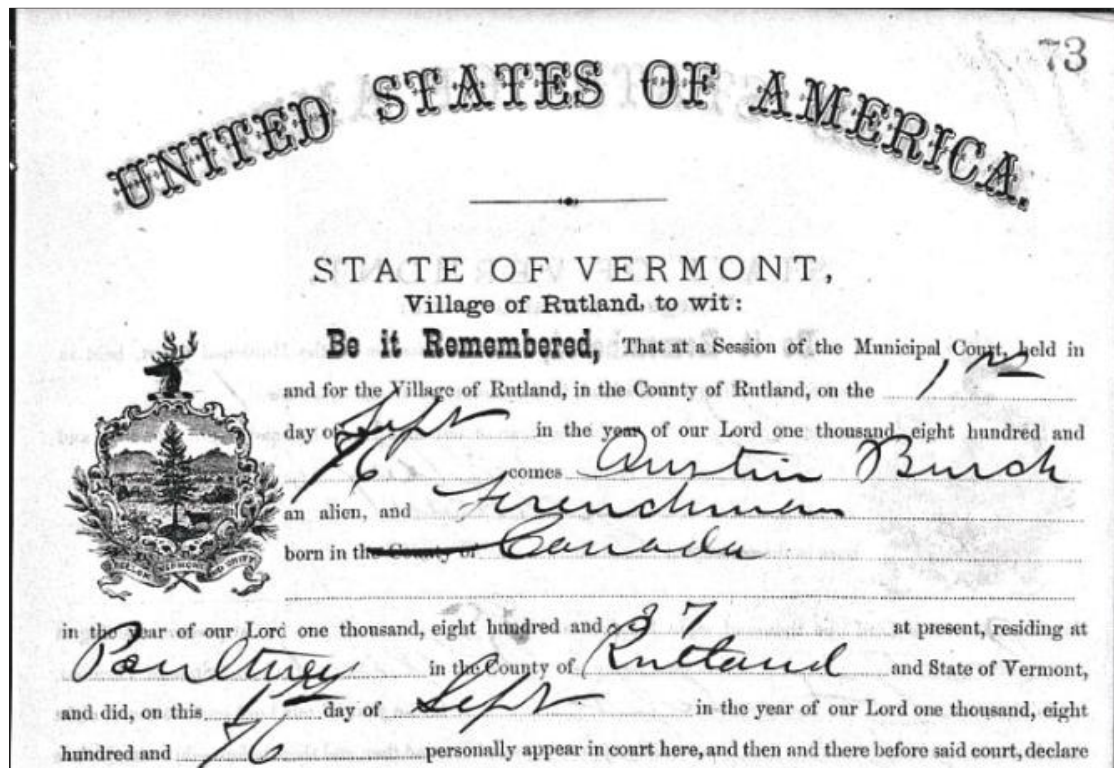 73
UNITED STATES OF AMERICA.
STATE OF VERMONT,
Village of Rutland, to wit:
Be it Remembered, That at a Session of the Municipal Court, held in
and for the Village of Rutland, in the County of Rutland, on the 1st
day of Sept in the year of our Lord one thousand, eight hundred and
76 comes Austin Burch
an alien, and Frenchman
born in the County of Canada
in the year of our Lord one thousand, eight hundred and 37 at present, residing at
Poultney in the County of Rutland and State of Vermont,
and did, on this 1st day of Sept in the year of our Lord one thousand, eight
hundred and 76 personally appear in court here, and then and there before said court, declare